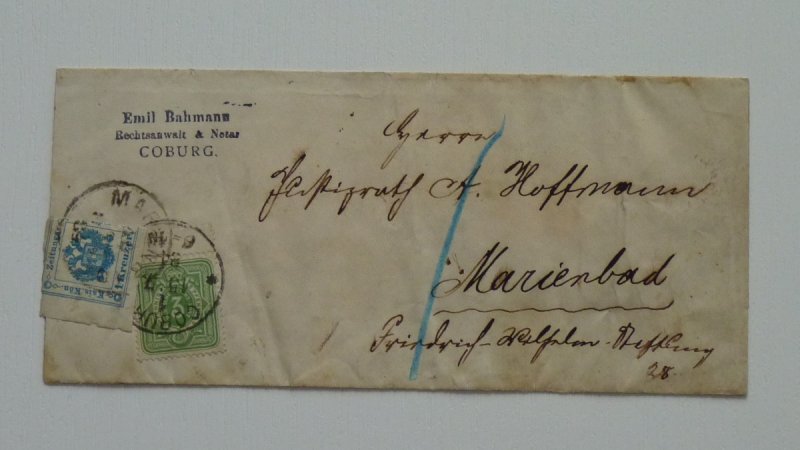 Emil Bahmann
Rechtsanwalt & Notar
COBURG.
Herrn
Justizrath A. Hoffmann
Marienbad
Friedrich-Wilhelm-Stiftung
28
MAR
Zeitungs
1 Kreuzer
Kais. Kön.
COBU
3